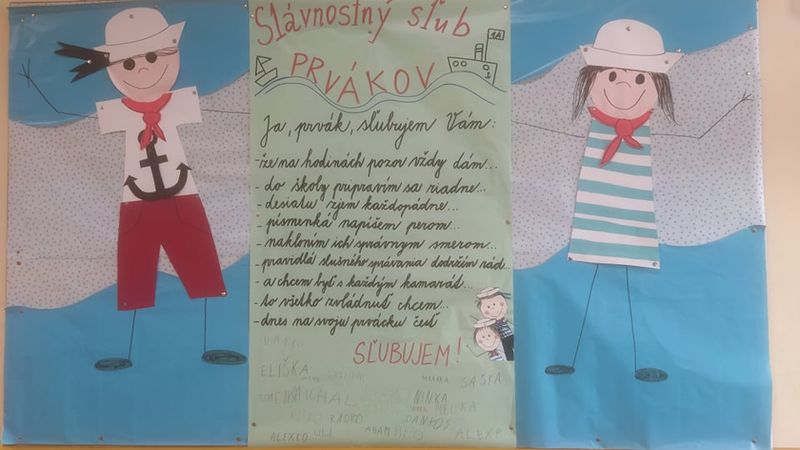 Slávnostný sľub
1A
PRVÁKOV
Ja, prvák, sľubujem Vám:
-že na hodinách pozor vždy dám...
- do školy pripravím sa riadne...
- desiatu zjem každopádne...
- písmenká napíšem perom...
- nakloním ich správnym smerom...
- pravidlá slušného správania dodržím rád...
- a chcem byť s každým kamarát...
- to všetko zvládnuť chcem...
- dnes na svoju prvácku česť
SĽUBUJEM!
ELIŠKA
SAŠA
MICHAL NINKA
RADKO DANLOS
ALEXKO ULI ADAM ALEX